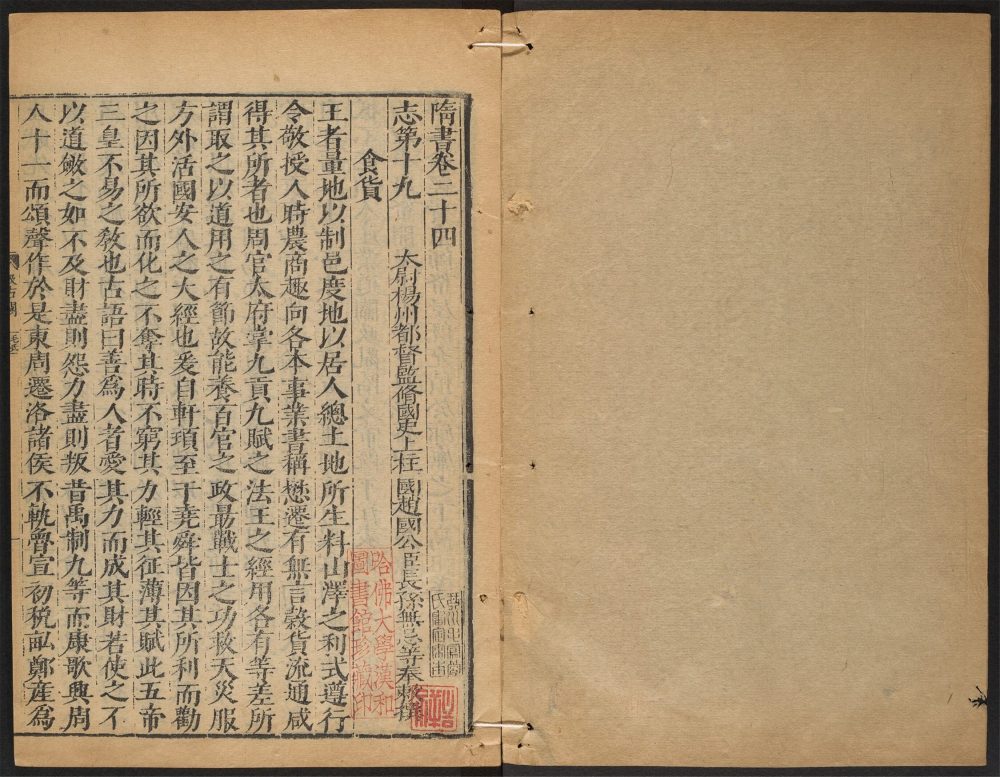 隋書卷二十四
志第十九
太尉楊州都督監脩國史上柱國趙國公臣長孫無忌等奉敕撰
食貨
王者量地以制邑度地以居人總土地所生料山澤之利式遵行
令敬授人時農商趣向各本事業書稱懋遷有無言穀貨流通咸
得其所者也周官太府掌九貢九賦之法王之經用各有等差所
謂取之以道用之有節故能養百官之政勗戰士之功救天災服
方外活國安人之大經也爰自軒頊至于堯舜皆因其所利而勸
之因其所欲而化之不奪其時不窮其力輕其征薄其賦此五帝
三皇不易之敎也古語曰善爲人者愛其力而成其財若使之不
以道斂之如不及財盡則怨力盡則叛昔禹制九等而康歌興周
人十一而頌聲作於是東周遷洛諸侯不軌魯宣初稅畝鄭產爲
哈佛大學漢和
圖書館珍藏印